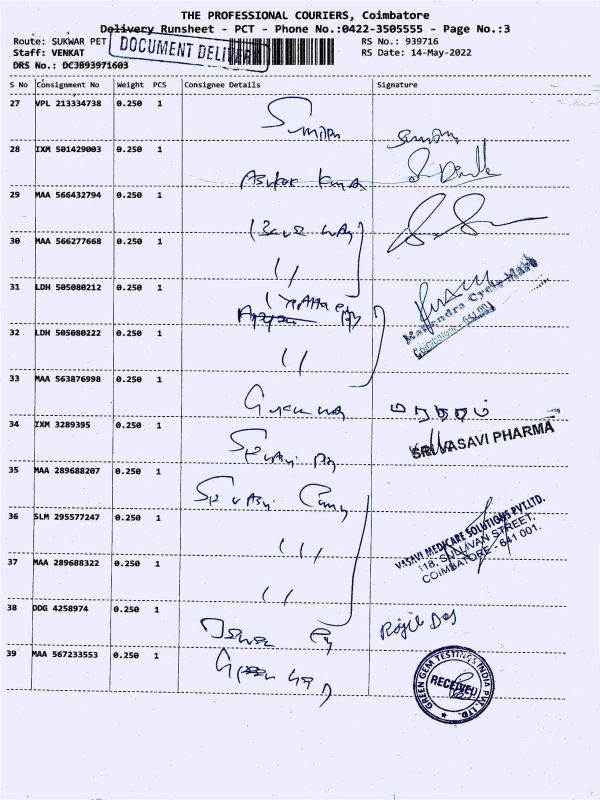 THE PROFESSIONAL COURIERS, Coimbatore
Delivery Runsheet - PCT - Phone No.:0422-3505555 - Page No.:3
Route: SUKWAR PET
DOCUMENT DELIVERY
RS No.: 939716
Staff: VENKAT
RS Date: 14-May-2022
DRS No.: DCJB93971603
S No Consignment No Weight PCS Consignee Details Signature
27 VPL 213334738 0.250 1
28 IXM 501429003 0.250 1
29 MAA 566432794 0.250 1
30 MAA 566277668 0.250 1
31 LDH 505080212 0.250 1
Mahendra Cycle Mart
Coimbatore - 641 001
32 LDH 505080222 0.250 1
33 MAA 563876998 0.250 1
34 IXM 3289395 0.250 1
SRI VASAVI PHARMA
35 MAA 289688207 0.250 1
36 SLM 295577247 0.250 1
VASAVI MEDICARE SOLUTIONS PVT.LTD.
118, SULLIVAN STREET,
COIMBATORE - 641 001.
37 MAA 289688322 0.250 1
38 DDG 4258974 0.250 1
39 MAA 567233553 0.250 1
GREEN GEM TESTINGS INDIA PVT. LTD.
RECEIVED